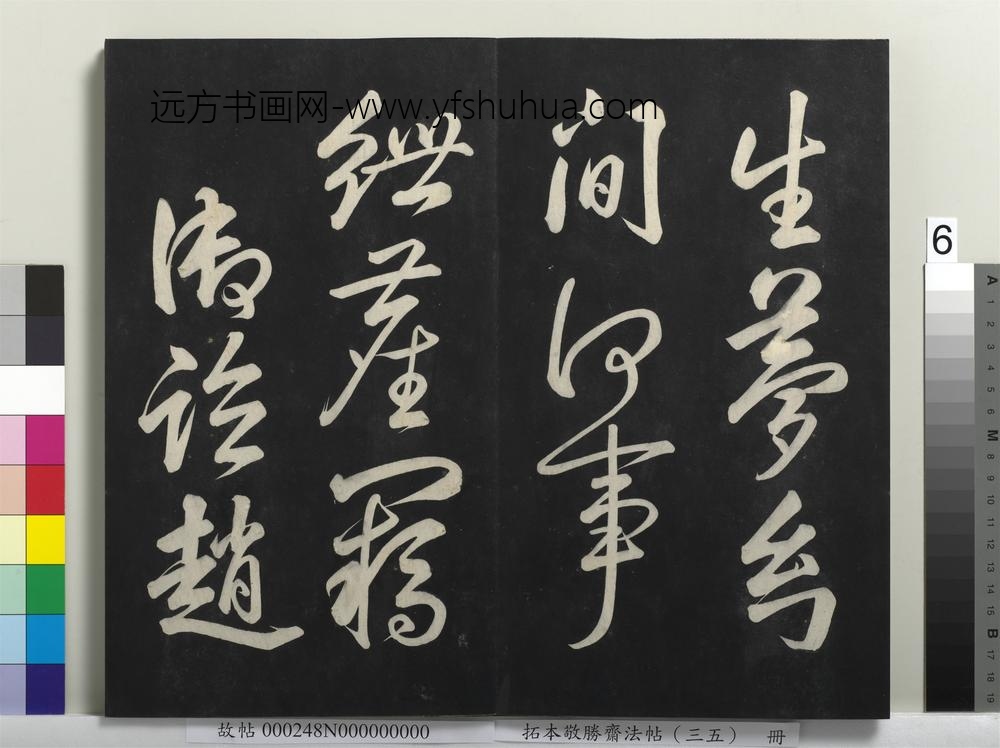 生夢幻
間何事
紲塵羈
御詮趙
远方书画网-www.yfshuhua.com
故帖 000248N000000000
拓本敬勝齋法帖（三五） 冊
6
A 1 2 3 4 5 6 M 8 9 10 11 12 13 14 15 B 17 18 19